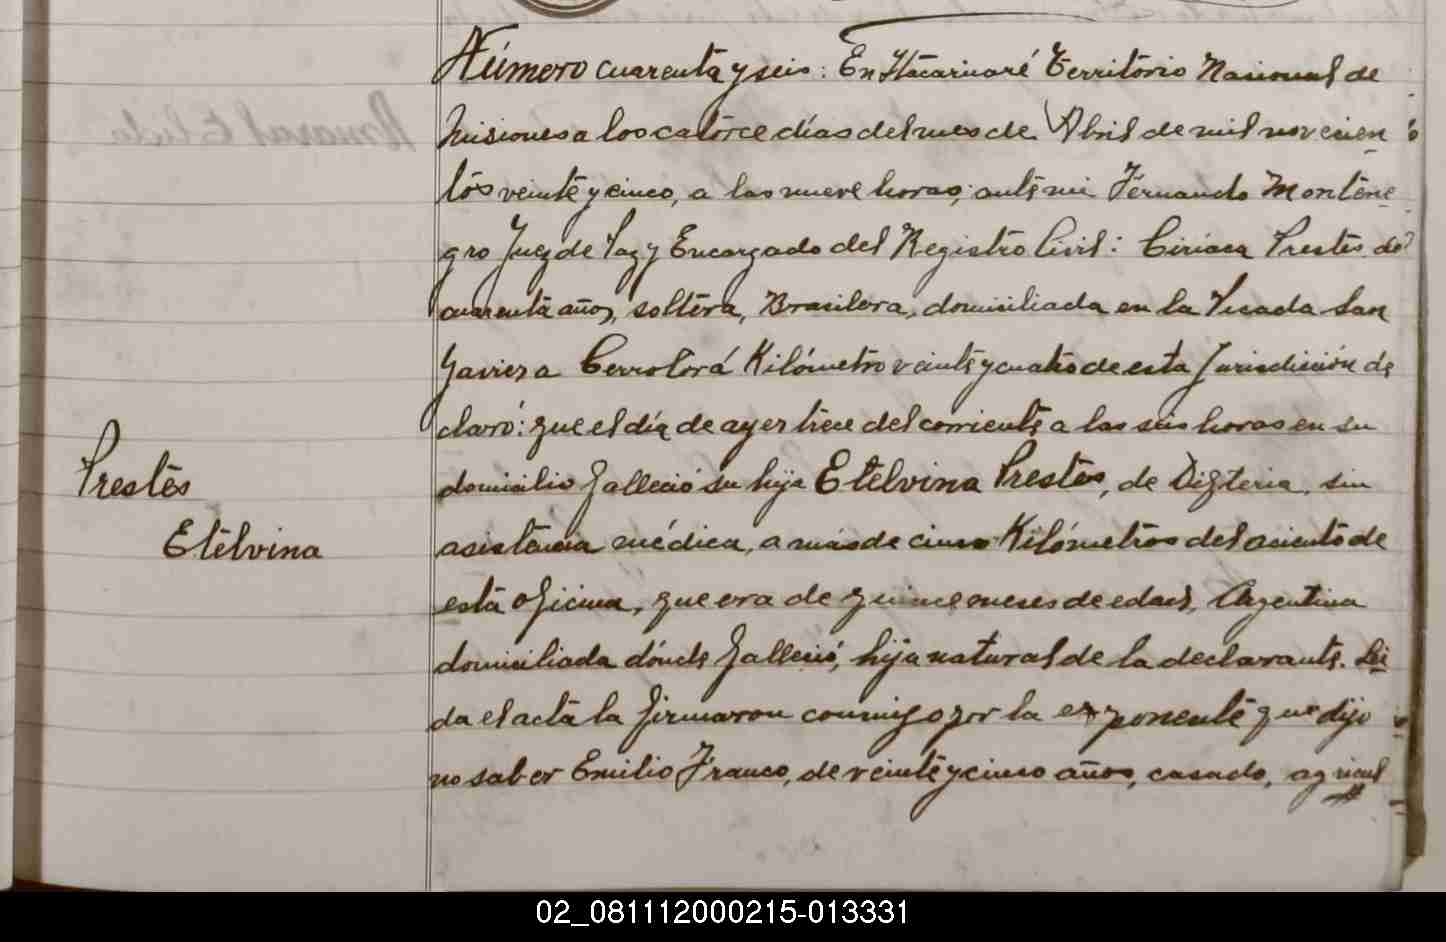 Número cuarenta y seis: En Itacaruaré Territorio Nacional de
Misiones a los catorce días del mes de Abril de mil novecien
tos veinte y cinco, a las nueve horas, ante mi Fernando Montene
gro Juez de Paz y Encargado del Registro Civil: Ciriaca Prestes de
cuarenta años, soltera, Brasilera, domiciliada en la Picada San
Javier a Cerro Corá Kilómetro veinte y cuatro de esta Jurisdicción de
claró: que el día de ayer trece del corriente a las seis horas en su
domicilio falleció su hija Etelvina Prestes, de Difteria, sin
asistencia médica, a mas de cinco Kilómetros del asiento de
esta oficina, que era de quince meses de edad, Argentina
domiciliada dónde falleció, hija natural de la declarante. Lei
da el acta la firmaron conmigo por la exponente que dijo
no saber Emilio Franco, de veinte y cinco años, casado, agricul
Prestes
Etelvina
Amaral Elida
02_081112000215-013331